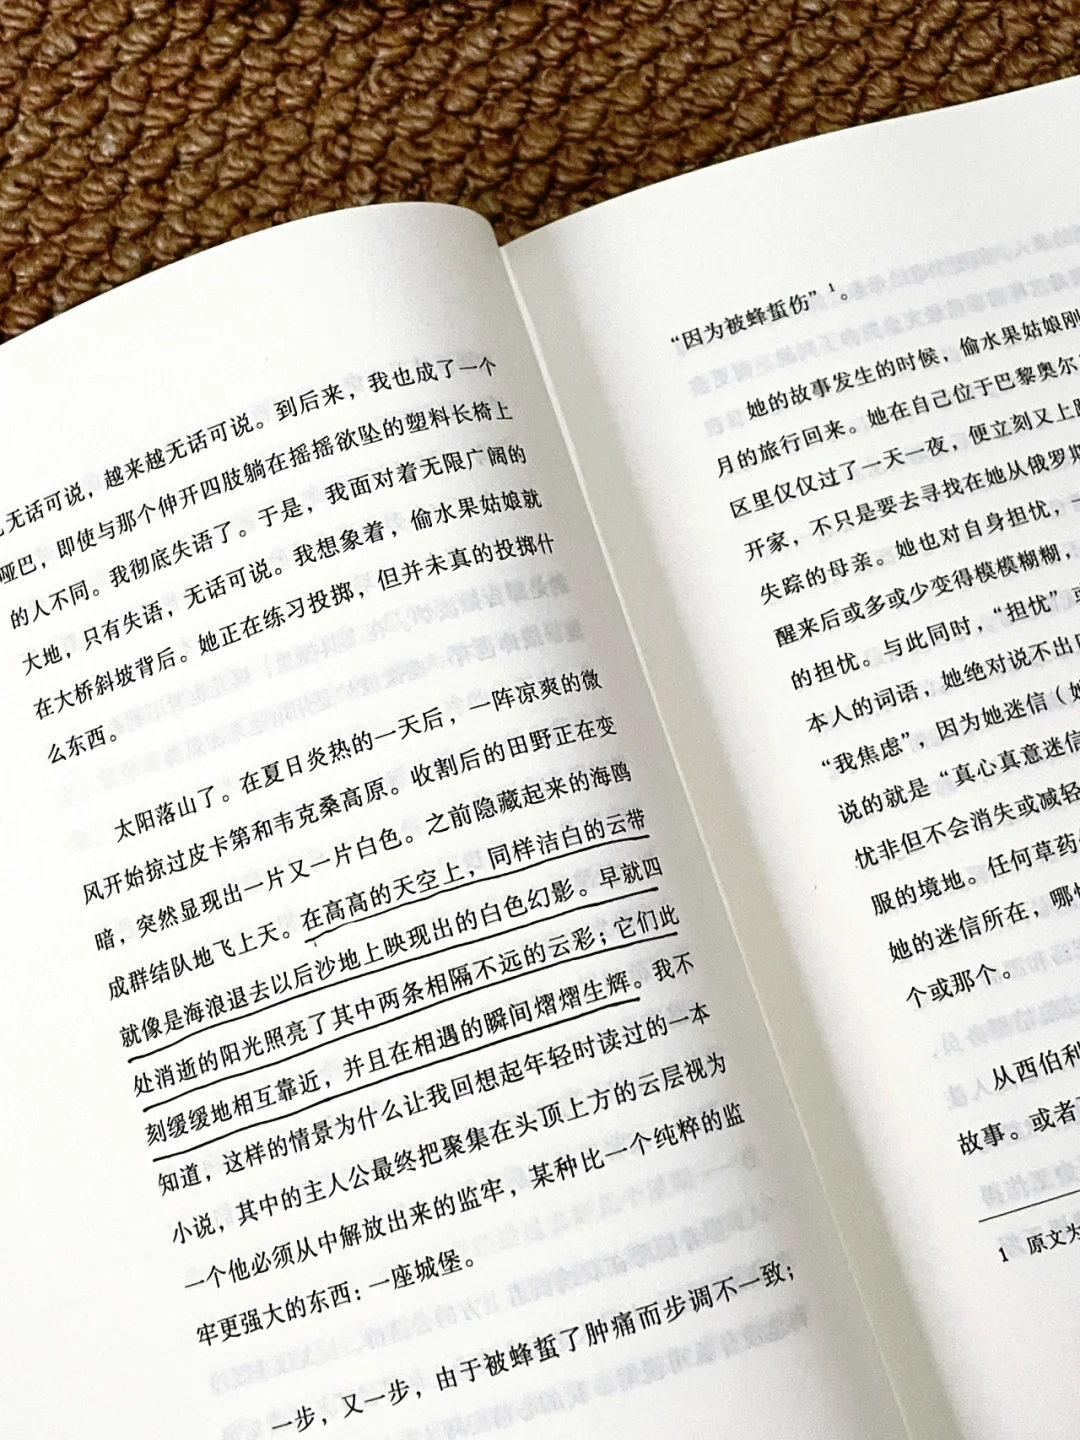 无话可说，越来越无话可说。到后来，我也成了一个
哑巴，即使与那个伸开四肢躺在摇摇欲坠的塑料长椅上
的人不同。我彻底失语了。于是，我面对着无限广阔的
大地，只有失语，无话可说。我想象着，偷水果姑娘就
在大桥斜坡背后。她正在练习投掷，但并未真的投掷什
么东西。
太阳落山了。在夏日炎热的一天后，一阵凉爽的微
风开始掠过皮卡第和韦克桑高原。收割后的田野正在变
暗，突然显现出一片又一片白色。之前隐藏起来的海鸥
成群结队地飞上天。在高高的天空上，同样洁白的云带
就像是海浪退去以后沙地上映现出的白色幻影。早就四
处消逝的阳光照亮了其中两条相隔不远的云彩；它们此
刻缓缓地相互靠近，并且在相遇的瞬间熠熠生辉。我不
知道，这样的情景为什么让我回想起年轻时读过的一本
小说，其中的主人公最终把聚集在头顶上方的云层视为
一个他必须从中解放出来的监牢，某种比一个纯粹的监
牢更强大的东西：一座城堡。
一步，又一步，由于被蜂蜇了肿痛而步调不一致；
“因为被蜂蜇伤”1。
她的故事发生的时候，偷水果姑娘刚
月的旅行回来。她在自己位于巴黎奥尔
区里仅仅过了一天一夜，便立刻又上路
开家，不只是要去寻找在她从俄罗斯
失踪的母亲。她也对自身担忧，一
醒来后或多或少变得模模糊糊，
的担忧。与此同时，“担忧”或
本人的词语，她绝对说不出口
“我焦虑”，因为她迷信（她
说的就是“真心真意迷信
忧非但不会消失或减轻
服的境地。任何草药
她的迷信所在，哪怕
个或那个。
从西伯利
故事。或者
1 原文为